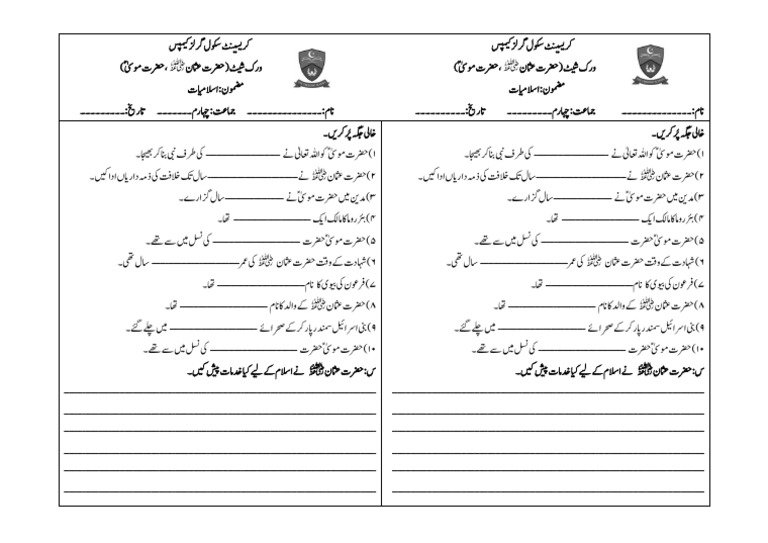 کریسینٹ سکول گرلز کیمپس
ورک شیٹ (حضرت عثانؓ ، حضرت موسیٰؑ)
مضمون: اسلامیات
نام: ________________ جماعت: چہارم ________ تاریخ: __________
خالی جگہ پُر کریں۔
۱) حضرت موسیٰؑ کو اللہ تعالیٰ نے ________________ کی طرف نبی بنا کر بھیجا۔
۲) حضرت عثمانؓ نے ________________ سال تک خلافت کی ذمہ داریاں ادا کیں۔
۳) مدین میں حضرت موسیٰؑ نے ____________ سال گزارے۔
۴) بئر روما کا مالک ایک ________________ تھا۔
۵) حضرت موسیٰؑ حضرت ________________ کی نسل میں سے تھے۔
۶) شہادت کے وقت حضرت عثمانؓ کی عمر ________________ سال تھی۔
۷) فرعون کی بیوی کا نام ________________ تھا۔
۸) حضرت عثمانؓ کے والد کا نام ________________ تھا۔
۹) بنی اسرائیل سمندر پار کر کے صحرائے ________________ میں چلے گئے۔
۱۰) حضرت موسیٰؑ حضرت ________________ کی نسل میں سے تھے۔
س: حضرت عثمانؓ نے اسلام کے لیے کیا خدمات پیش کیں۔
کریسینٹ سکول گرلز کیمپس
ورک شیٹ (حضرت عثمانؓ ، حضرت موسیٰؑ)
مضمون: اسلامیات
نام: ________________ جماعت: چہارم ________ تاریخ: __________
خالی جگہ پُر کریں۔
۱) حضرت موسیٰؑ کو اللہ تعالیٰ نے ________________ کی طرف نبی بنا کر بھیجا۔
۲) حضرت عثمانؓ نے ________________ سال تک خلافت کی ذمہ داریاں ادا کیں۔
۳) مدین میں حضرت موسیٰؑ نے ____________ سال گزارے۔
۴) بئر روما کا مالک ایک ________________ تھا۔
۵) حضرت موسیٰؑ حضرت ________________ کی نسل میں سے تھے۔
۶) شہادت کے وقت حضرت عثمانؓ کی عمر ________________ سال تھی۔
۷) فرعون کی بیوی کا نام ________________ تھا۔
۸) حضرت عثمانؓ کے والد کا نام ________________ تھا۔
۹) بنی اسرائیل سمندر پار کر کے صحرائے ________________ میں چلے گئے۔
۱۰) حضرت موسیٰؑ حضرت ________________ کی نسل میں سے تھے۔
س: حضرت عثمانؓ نے اسلام کے لیے کیا خدمات پیش کیں۔